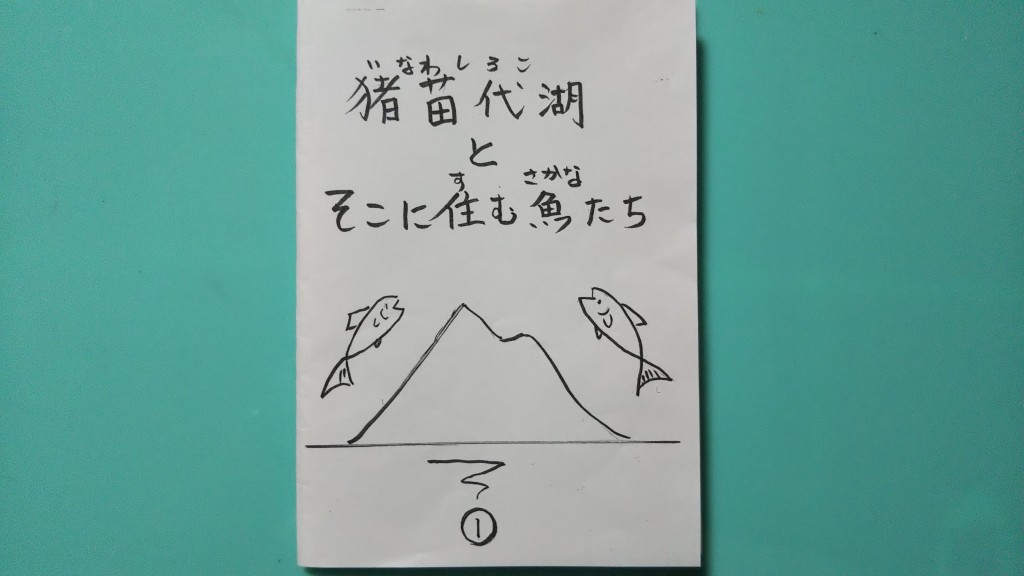 いなわしろこ
猪苗代湖
と
す さかな
そこに住む魚たち
①